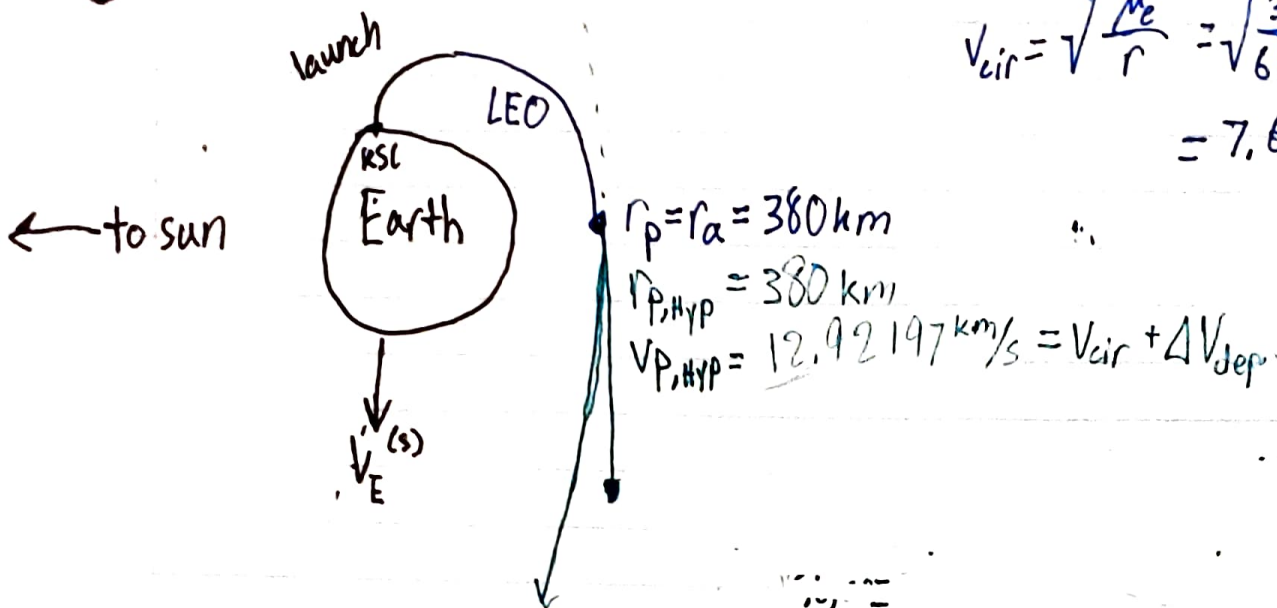 launch
LEO
KSC
Earth
←to sun
V_E^(s)
r_p=r_a=380km
r_p,Hyp=380km
V_p,Hyp=12.92197km/s=V_cir+ΔV_dep
V_cir=√μe/r=√
=7.